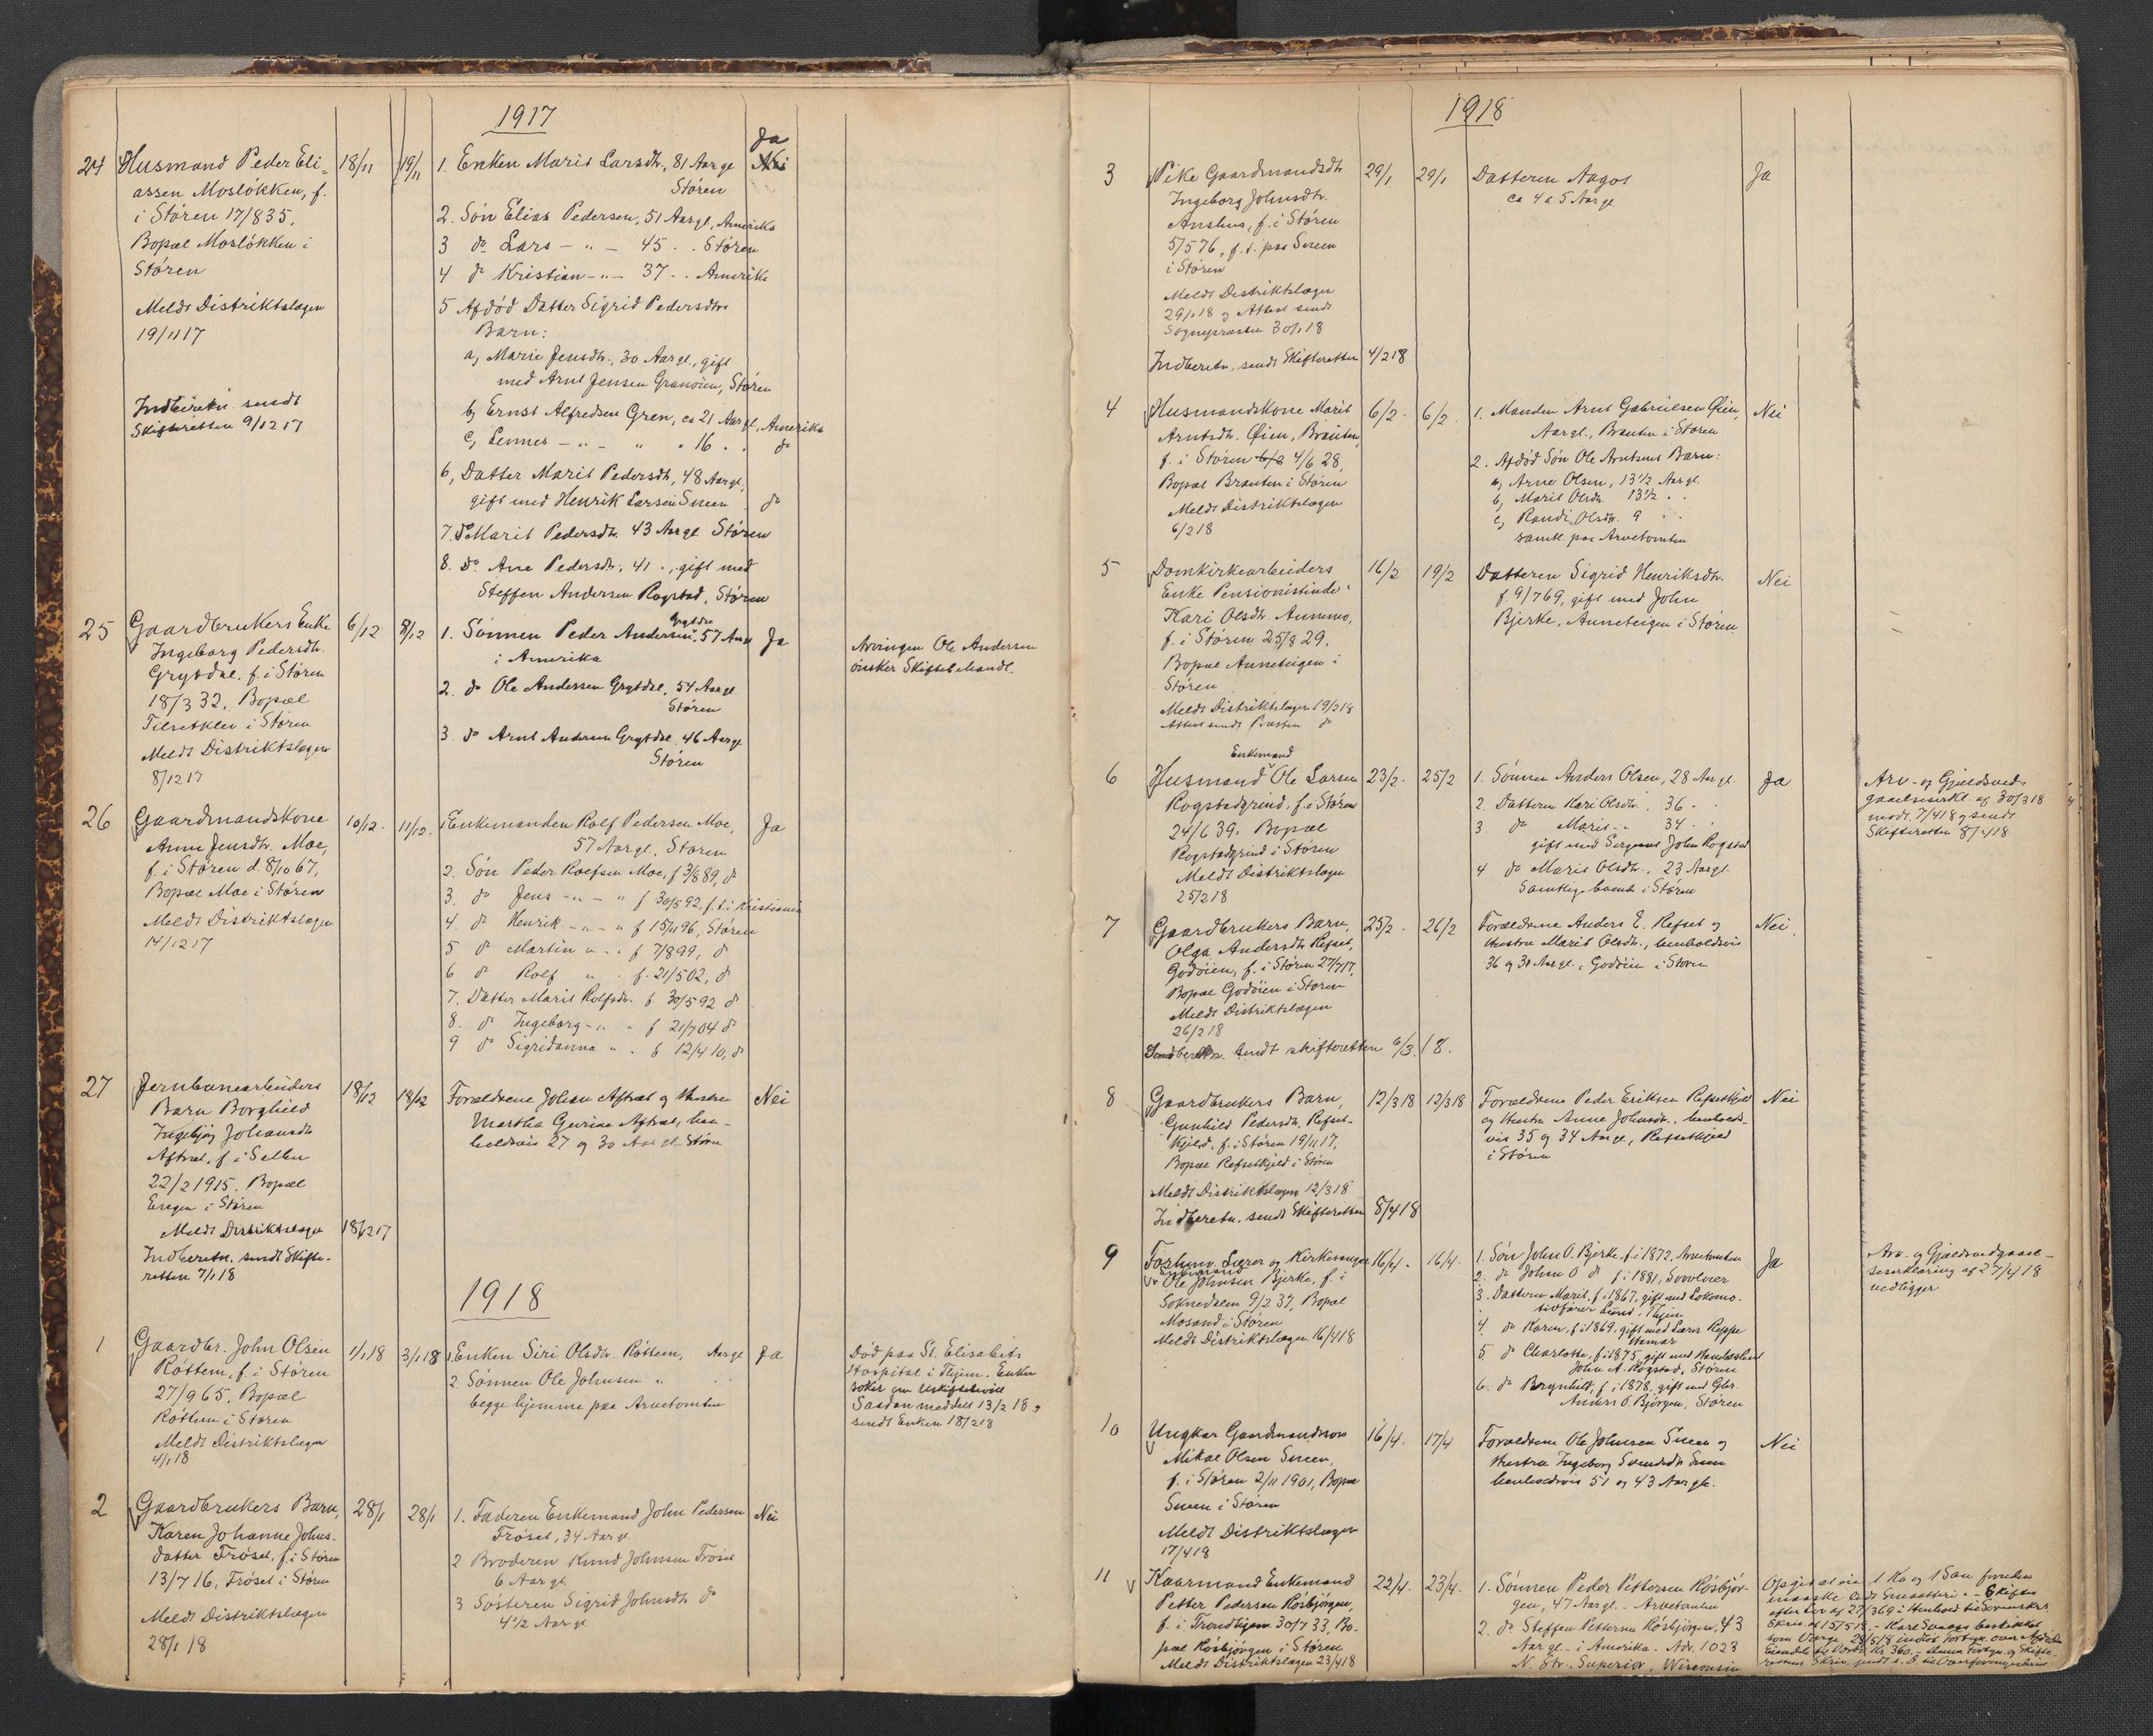 1917
24 Husmand Peder Eli= 18/11 19/11 1. Enken Marit Larsdtr., 81 Aar gl Ja Nei
assen Mosløkken, f. Støren
i Støren 17/835, 2. Søn Elias Pedersen, 51 Aar gl, Amerika
Bopæl Mosløkken i 3 do Lars - " - 45 . . Støren
Støren 4 do Kristian - " - 37 . . Amerika
Meldt Distriktslægen 5 Afdød Datter Sigrid Pedersdtrs
19/11 17 Barn:
a, Marie Jensdtr., 30 Aar gl., gift
med Arnt Jensen Granøien, Støren
Indberetn. sendt b, Ernst Alfredsen Gren, ca 21 Aar gl, Amerika
Skifteretten 9/12 17 c, Lennes - " - " " 16 . . do
6, Datter Marit Pedersdtr, 48 Aar gl,
gift med Henrik Larsen Sneen do
7. do Marit Pedersdtr. 43 Aar gl Støren
8. do Ane Pedersdtr, 41 . , gift med
Steffen Andersen Rogstad, Støren
25 Gaardbrukers Enke 6/12 8/12 1. Sønnen Peder Andersen Grytdal, 57 Aar Ja
Ingeborg Pedersdtr. i Amerika Arvingen Ole Andersen
Grytdal, f. i Støren 2. do Ole Andersen Grytdal, 54 Aar gl ønsker Skiftebehandl.
18/3 32, Bopæl Støren
i Støren 3 do Arnt Andersen Grytdal, 46 Aar gl
Meldt Distriktslægen Støren
8/12 17
26 Gaardmandskone 10/12. 11/12. 1 Enkemanden Rolf Pedersen Moe, Ja
Anne Jensdtr. Moe, 57 Aar gl, Støren
f. i Støren d. 8/10 67, 2. Søn Peder Rolfsen Moe, f 3/8 89, do
Bopæl Moe i Støren 3. do Jens - " - " f 30/5 92, f. t. i Kristiania
Meldt Distriktslægen 4. do Henrik - " - " f 15/11 96, Støren
14/12 17 5 do Martin " - . f 7/8 99, do
6 do Rolf " . f. 21/5 02, do
7. Datter Marit Rolfsdtr. f. 30/5 92 do
8. do Ingeborg - " " f 21/7 04 do
9 do Sigridanna " . f 12/4 10, do
27 Jernbanearbeiders 18/12 18/12 Forældrene Johan Aftret og Hustru Nei
Barn Borghild Martha Gurine Aftret, hen-
Ingebjør Johansdtr holdsvis 27 og 30 Aar gl. Støren
Aftret, f. i Selbu
22/2 1915. Bopæl
i Støren
Meldt Distriktslægen 18/12 17
Indberetn. sendt Skifte-
retten 7/1 18
1918
1 Gaardbr. John Olsen 1/1 18 3/1 18 1. Enken Siri Olsdtr. Røttem, Aar gl Ja Død paa St. Elisabets
Røttem, f. i Støren 2 Sønnen Ole Johnsen " Hospital i Thjem. Enken
27/9 65, Bopæl begge hjemme paa Arvetomten søker om Uskiftebevill
Røttem i Støren Saadan meddelt 13/2 18 &
Meldt Distriktslægen sendt Enken 18/2 18
4/1 18
2 Gaardbrukers Barn, 28/1 28/1 1. Faderen Enkemand John Pedersen Nei
Karen Johanne Johns- Frøset, 34 Aar gl.
datter Frøset, f. i Støren 2 Broderen Knud Johnsen Frøset
13/7 16, Frøset i Støren 6 Aar gl
Meldt Distriktslægen 3 Søsteren Sigrid Johnsdtr do
28/1 18 4 1/2 Aar gl
1918
3 Pike Gaardmandsdtr 29/1 29/1 Datteren Aagot Ja
Ingeborg Johnsdtr. ca 4 a 5 Aar gl
Anshus, f. i Støren
5/5 76, f. t. paa Sneen
i Støren
Meldt Distriktslægen
29/1 18 og Attest sendt
Sognepresten 30/1 18
Indberetn. sendt Skifteretten 4/2 18
4 Husmandskone Marit 6/2. 6/2. 1. Manden Arnt Gabrielsen Øien, Nei
Arntsdtr. Øien, Brauten, Aar gl., Brauten i Støren
f. i Støren 6/2 4/6 28, 2. Afdød Søn Ole Arntsens Barn:
Bopæl Brauten i Støren a, Arne Olsen, 13 1/2 Aar gl.
Meldt Distriktslægen b, Marit Olsdtr. 13 1/2 . .
6/2 18 c, Randi Olsdtr. 9 . .
samtl. paa Arvetomten
5 Domkirkearbeiders 16/2 19/2 Datteren Sigrid Henriksdtr. Nei
Enke Pensionistinde f. 9/7 69, gift med John
Kari Olsdtr Aunmo, Bjerke, Auneteigen i Støren
f. i Støren 25/8 29.
Bopæl Auneteigen i
Støren
Meldt Distriktslægen 19/2 18
Attest sendt Presten do
6 Husmand Enkemand Ole Larsen 23/2. 25/2 1. Sønnen Anders Olsen, 28 Aar gl. Ja Arv- og Gjældsved-
Rogstadgrind, f. i Støren 2. Datteren Kari Olsdtr. 36 . . gaaelseserkl. af 30/3 18
24/6 39. Bopæl 3 do Marit - " 34 . . modt. 7/4 18 og sendt
Rogstadgrind i Støren gift med Sergeant John Rogstad Skifteretten 8/4 18
Meldt Distriktslægen 4 do Marit Olsdtr., 23 Aar gl.
25/2 18 Samtlige boende i Støren
7 Gaardbrukers Barn, 25/2 26/2 Forældrene Anders E. Refset og Nei.
Olga Andersdtr Refset, Hustru Marit Olsdtr., henholdsvis
Godøien, f. i Støren 27/7 17, 36 og 30 Aar gl., Godøien i Støren
Bopæl Godøien i Støren
Meldt Distriktslægen
26/2 18
Indberetn. sendt skifteretten 6/3. 18.
8 Gaardbrukers Barn, 12/3 18 12/3 18 Forældrene Peder Eriksen Refsetkjeld Nei
Gunhild Pedersdtr. Refset- og Hustru Anne Johnsdtr., henholds-
kjeld, f. i Støren 19/11 17, vis 35 og 34 Aar gl, Refsetkjeld
Bopæl Refsetkjeld i Støren i Støren
Meldt Distriktslægen 12/3 18
Indberetn. sendt Skifteretten 8/4 18
9 Forhenv. Lærer og Kirkesanger 16/4. 16/4. 1. Søn John O. Bjerke, f. i 1872, Arvetomten Ja Arv- og Gjældsvedgaael-
Enkemand 2. do Johan O do f. i 1881, Svolvær seserklæring af 27/4 18
Ole Johnsen Bjerke, f. i 3. Datteren Marit, f. i 1867, gift med Lokomo- vedligger
Soknedalen 9/2 37, Bopæl tivfører Lund, Thjem
Mosand i Støren 4 do Karen, f. i 1869, gift med Lærer Reppe
Meldt Distriktslægen 16/4 18 Hamar
5 do Charlotte, f. i 1875, gift med Handelsbest
John A. Rogstad, Støren
6. do Brynhild, f. i 1878, gift med Gbr.
Anders O. Bjørgen, Støren
10 Ungkar Gaardmandssøn 16/4. 17/4 Forældrene Ole Johnsen Sneen og Nei
Mikal Olsen Sneen, Hustru Ingeborg Svendsdtr Sneen
f. i Støren 2/11 1901, Bopæl henholdsvis 51 og 43 Aar gl.
Sneen i Støren
Meldt Distriktslægen
17/4 18
11 Kaarmand Enkemand 22/4. 23/4. 1. Sønnen Peder Pettersen Røsbjør- 1 Ko og 1 Sau foruden
Petter Pedersen Røsbjørgen, gen, 47 Aar gl. - Arvetomten
f. i Trondhjem 30/7 33, Bo- 2. do Steffen Pettersen Røsbjørgen, 43
pæl Røsbjørgen i Støren Aar gl. - i Amerika. Adr. 1023
Meldt Distriktslægen 23/4 18 N. Str., Superior, Wisconsin